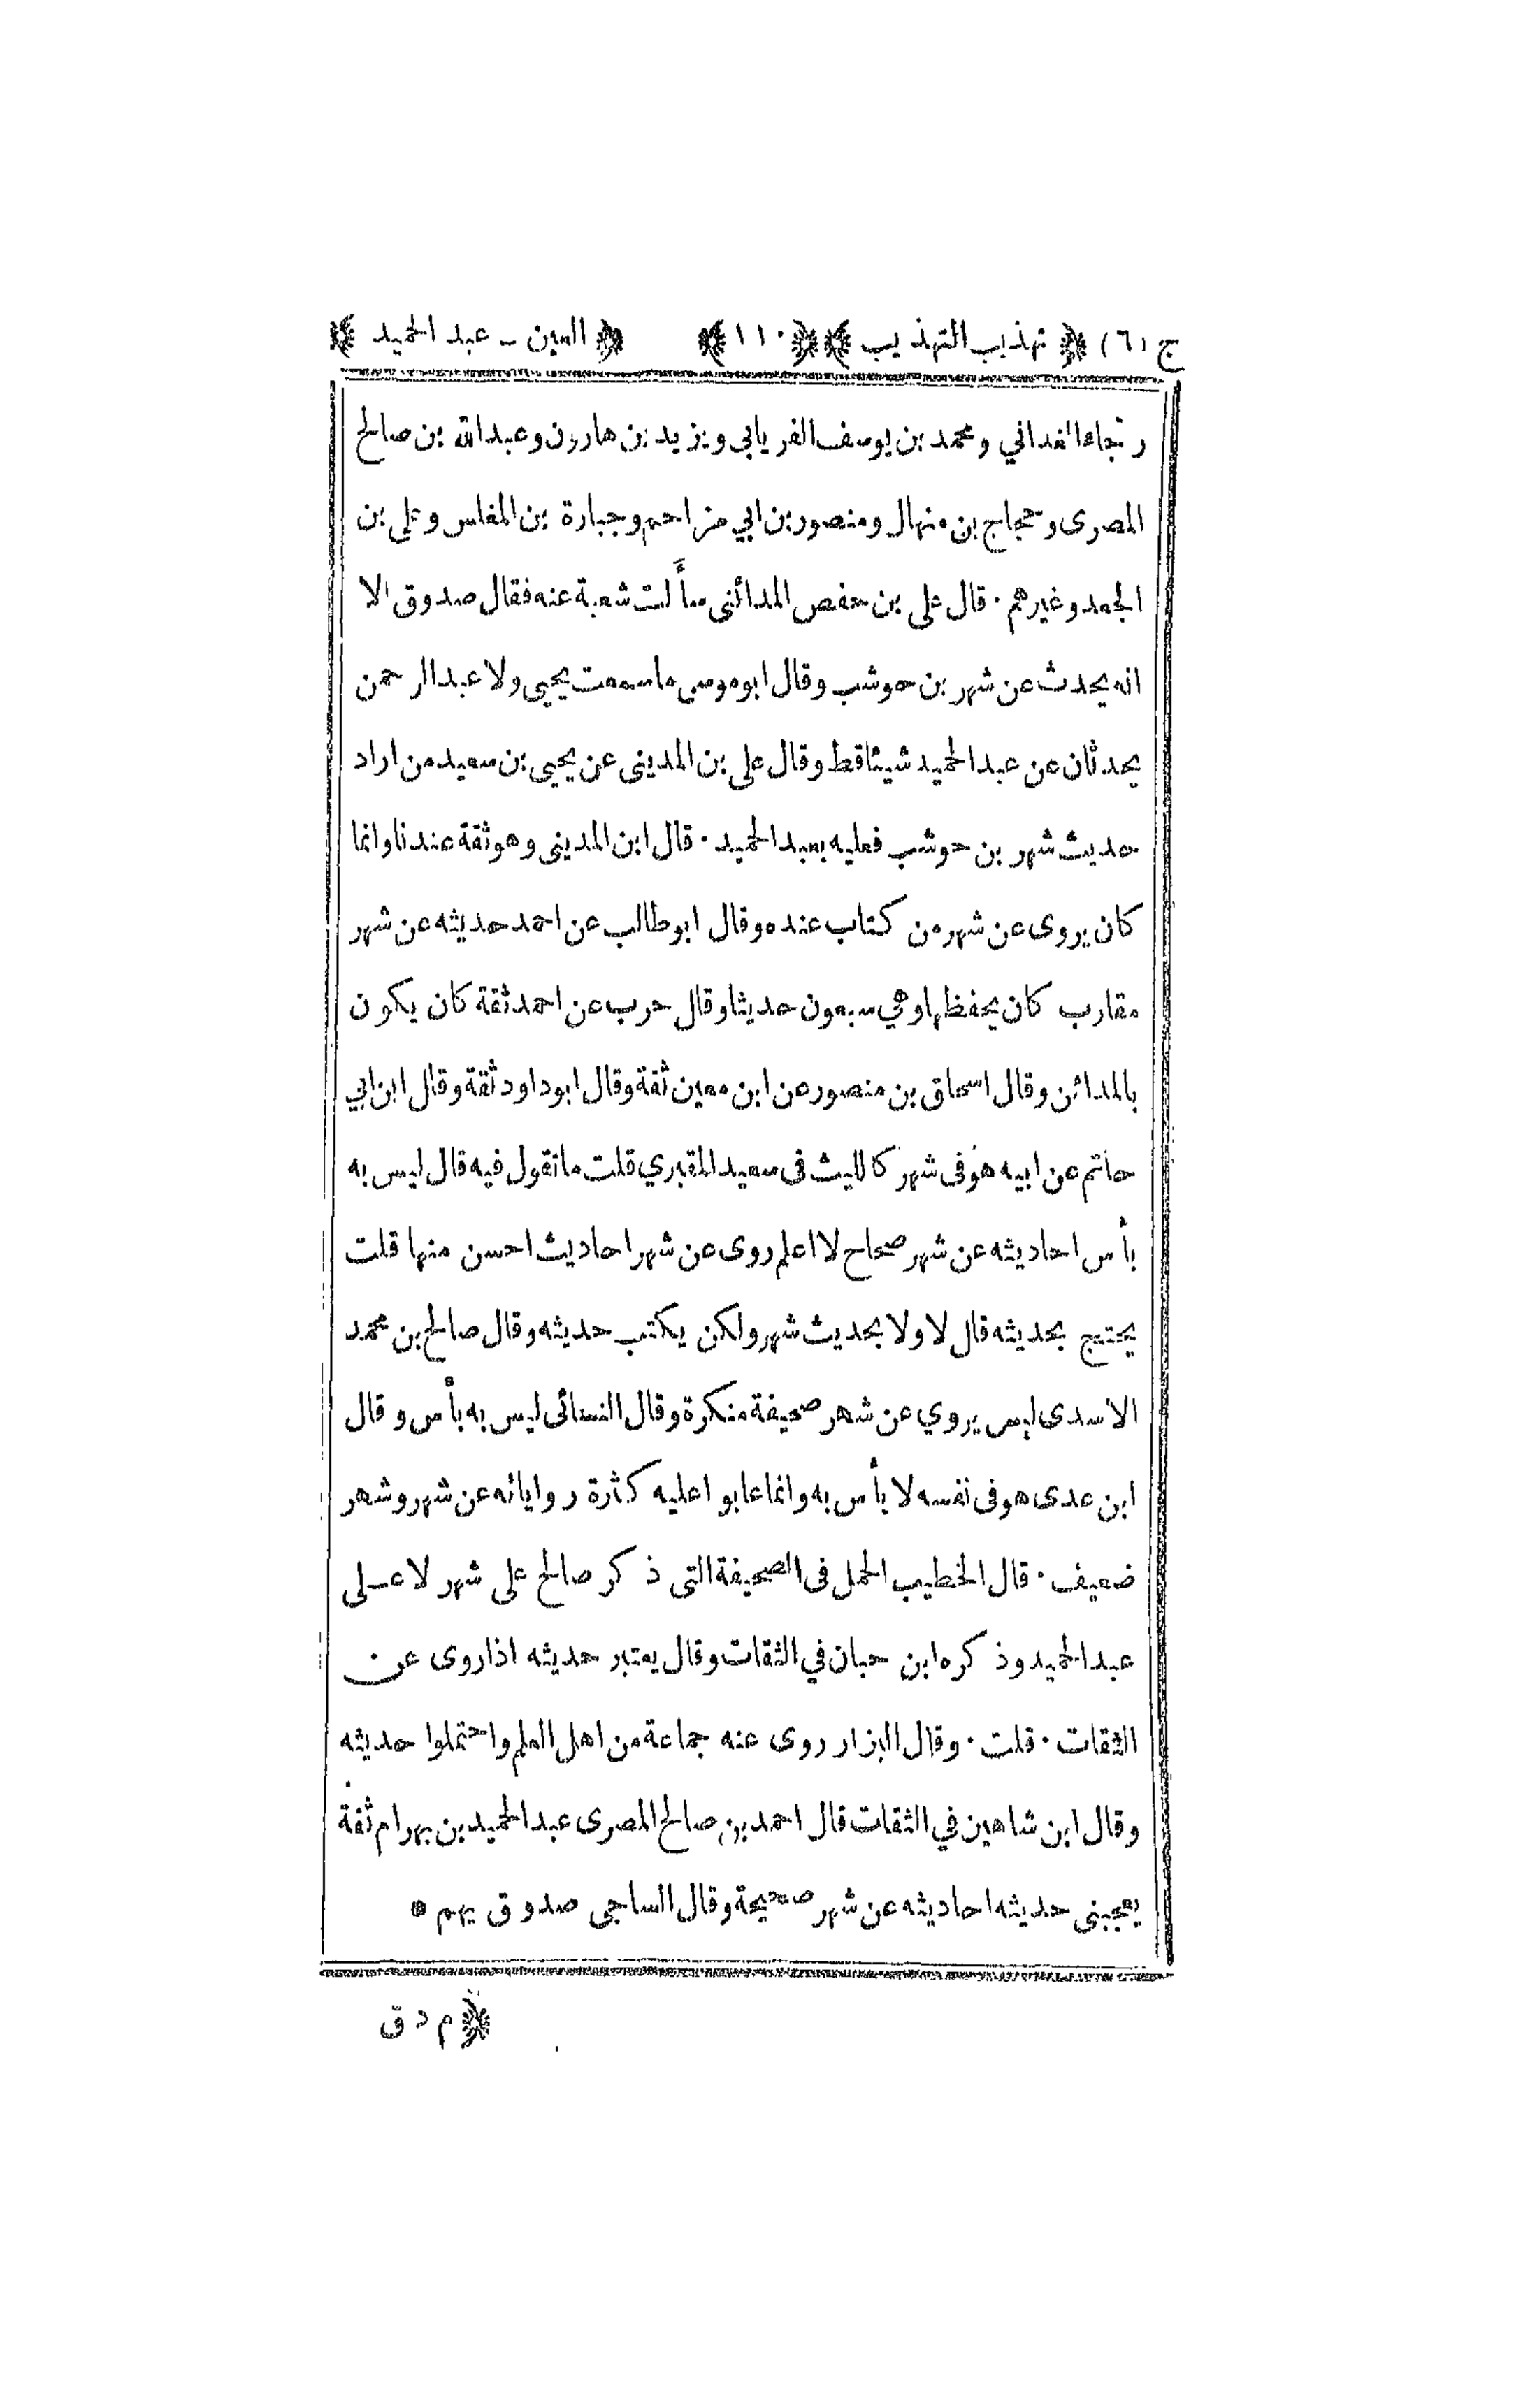 ج (٦) ﴿ تهذيب التهذيب ﴾ ﴿ ١١٠ ﴾ ﴿ العين - عبد الحميد ﴾
رجاء الغداني ومحمد بن يوسف الفريابي ويزيد بن هارون وعبد الله بن صالح
المصرى وحجاج بن منهال ومنصور بن ابي مزاحم وجبارة بن المغلس وعلي بن
الجعد وغيرهم ٠ قال على بن حفص المدائنى سألت شعبة عنه فقال صدوق الا
انه يحدث عن شهر بن حوشب وقال ابو موسى ما سمعت يحيى ولا عبد الرحمن
يحدثان عن عبد الحميد شيئا قط وقال على بن المدينى عن يحيى بن سعيد من اراد
حديث شهر بن حوشب فعليه بعبد الحميد ٠ قال ابن المدينى وهو ثقة عندنا وانما
كان يروى عن شهر من كتاب عنده وقال ابو طالب عن احمد حديثه عن شهر
مقارب كان يحفظها وهي سبعون حديثا وقال حرب عن احمد ثقة كان يكون
بالمدائن وقال اسحاق بن منصور عن ابن معين ثقة وقال ابو داود ثقة وقال ابن ابي
حاتم عن ابيه هو فى شهر كالليث فى سعيد المقبري قلت ما تقول فيه قال ليس به
بأس احاديثه عن شهر صحاح لا اعلم روى عن شهر احاديث احسن منها قلت
يحتج بحديثه قال لا ولا بحديث شهر ولكن يكتب حديثه وقال صالح بن محمد
الاسدى ليس يروي عن شهر صحيفة منكرة وقال النسائى ليس به بأس وقال
ابن عدى هو فى نفسه لا بأس به وانما عابوا عليه كثرة رواياته عن شهر وشهر
ضعيف ٠ قال الخطيب الحمل فى الصحيفة التى ذكر صالح على شهر لا على
عبد الحميد وذكره ابن حبان في الثقات وقال يعتبر حديثه اذا روى عن
الثقات ٠ قلت ٠ وقال البزار روى عنه جماعة من اهل العلم واحتملوا حديثه
وقال ابن شاهين في الثقات قال احمد بن صالح المصرى عبد الحميد بن بهرام ثقة
يعجبنى حديثه احاديثه عن شهر صحيحة وقال الساجى صدوق يهم ٠
﴿ م د ق